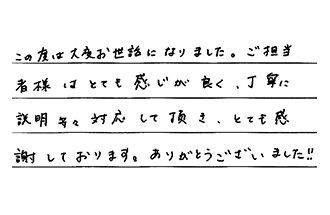 この度は大変お世話になりました。ご担当
者様はとても感じが良く、丁寧に
説明等々対応して頂き、とても感
謝しております。ありがとうございました!!